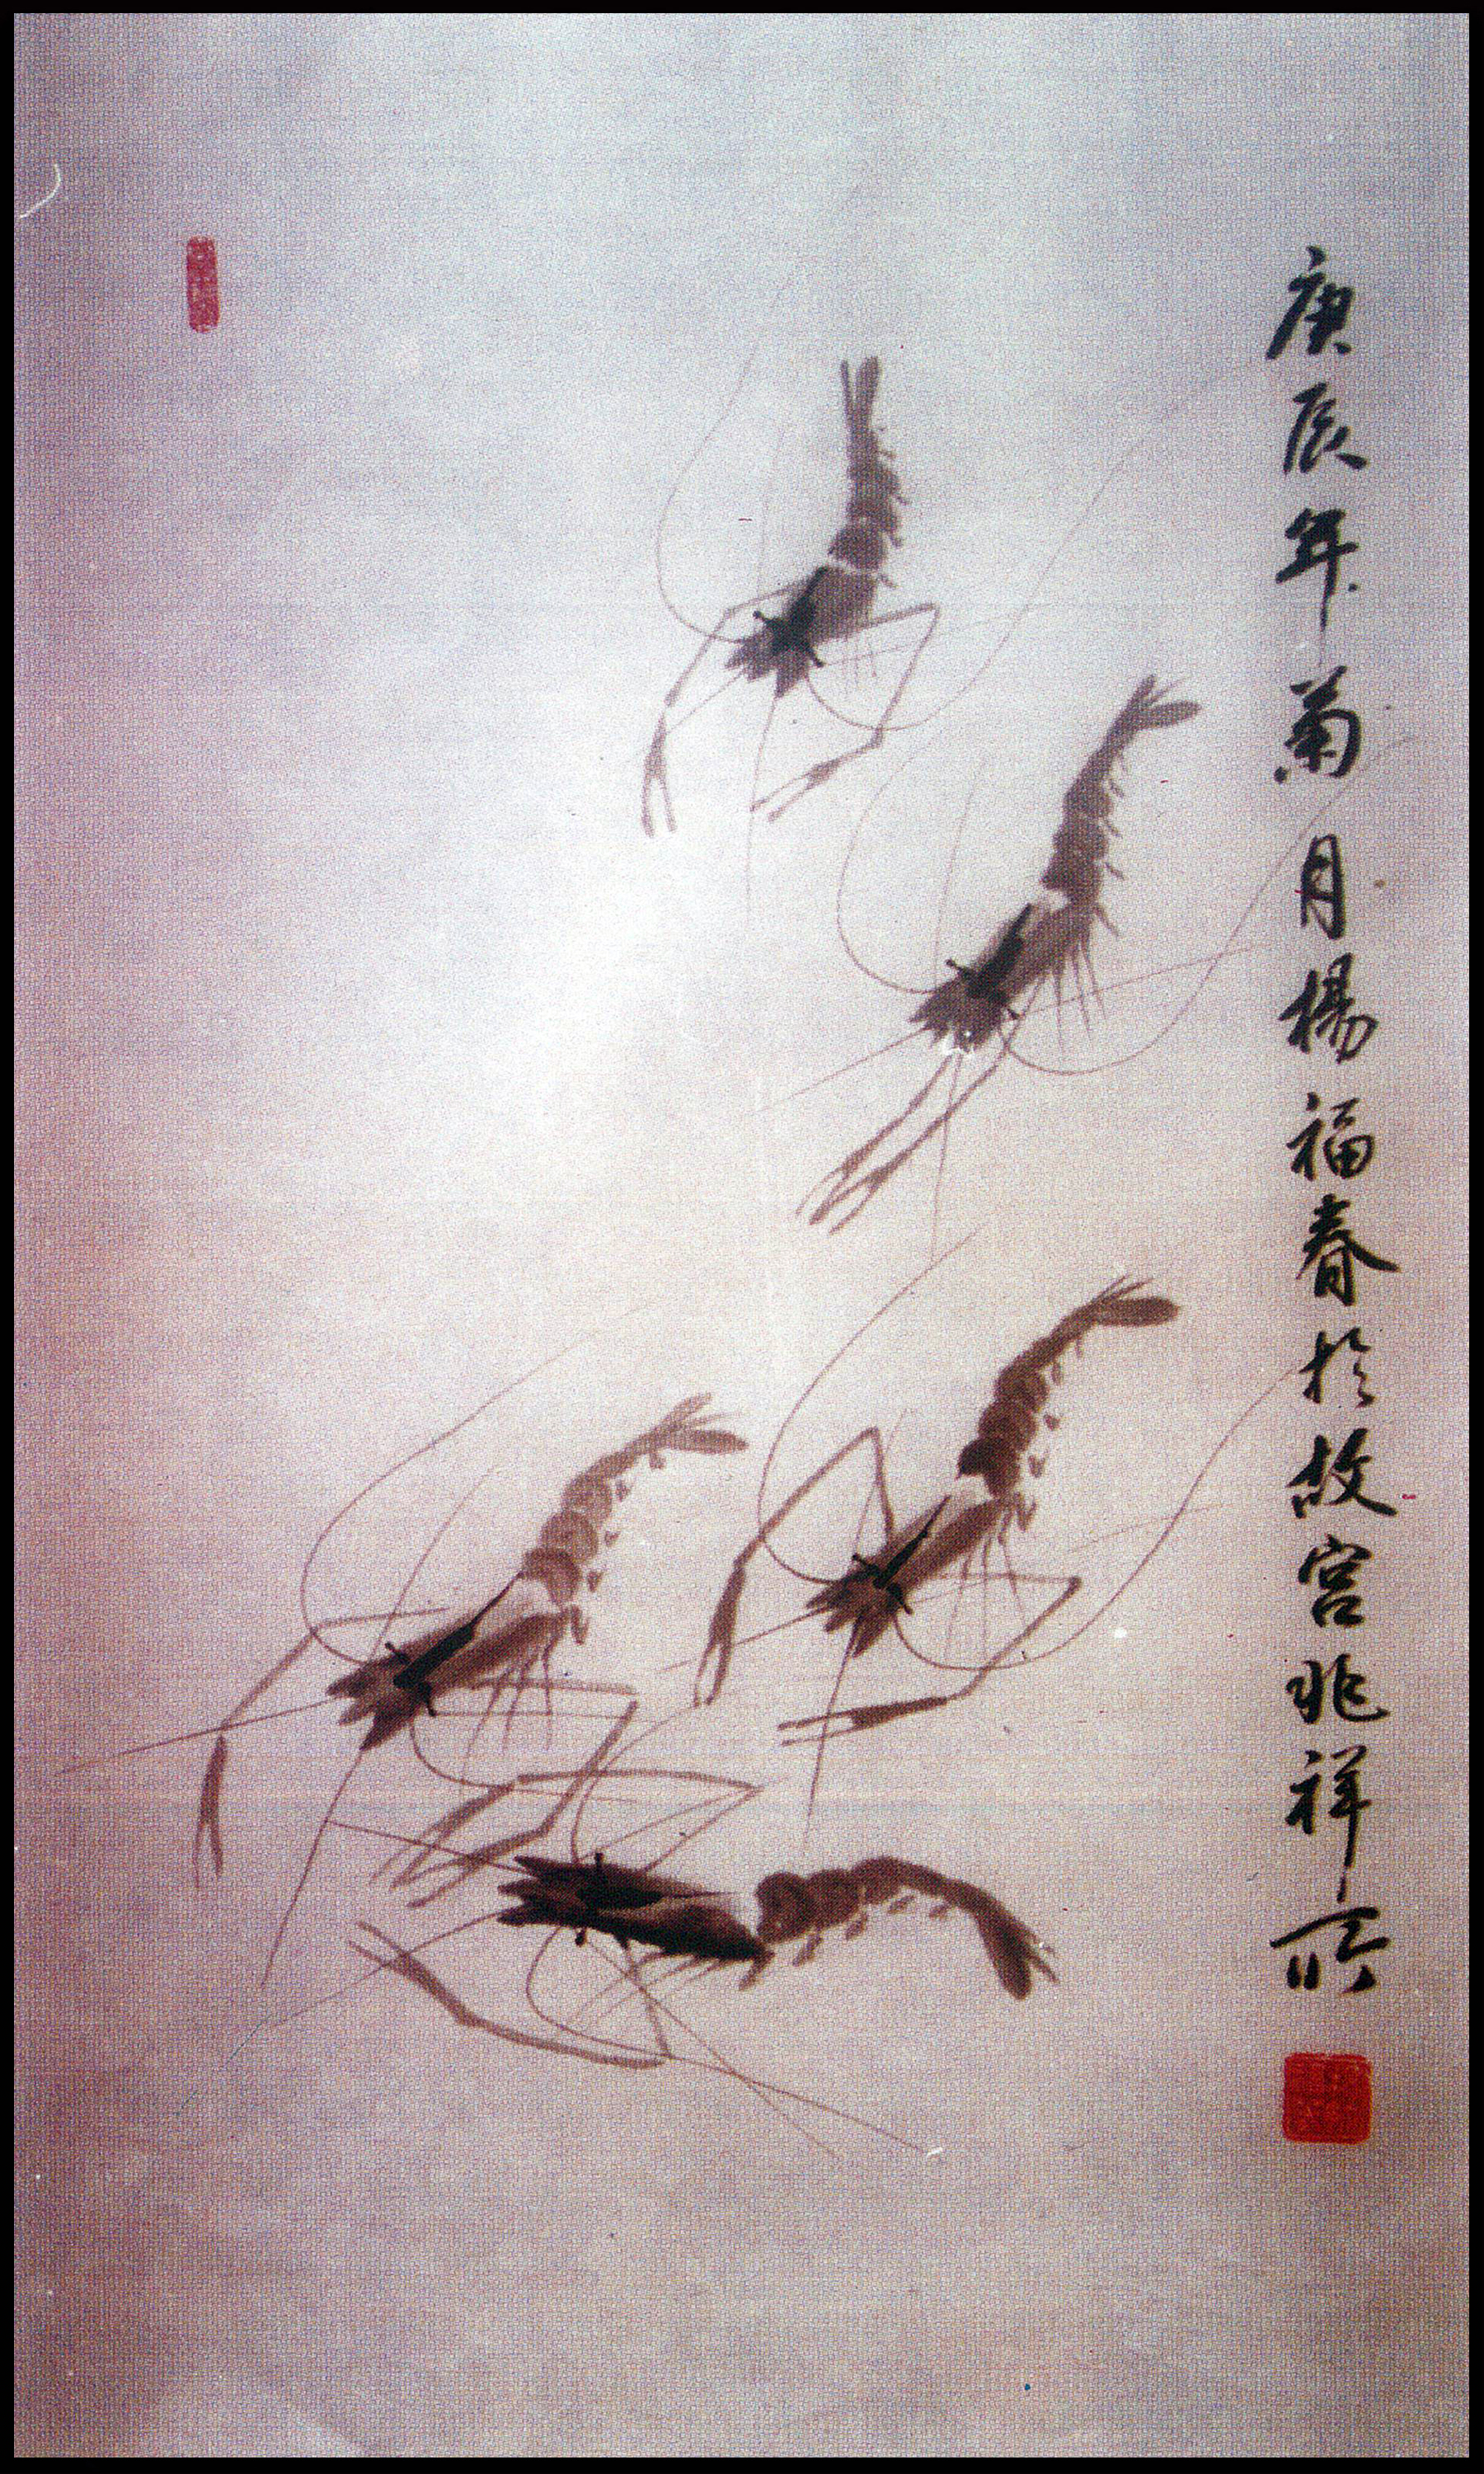 庚辰年菊月楊福春於故宮兆祥所